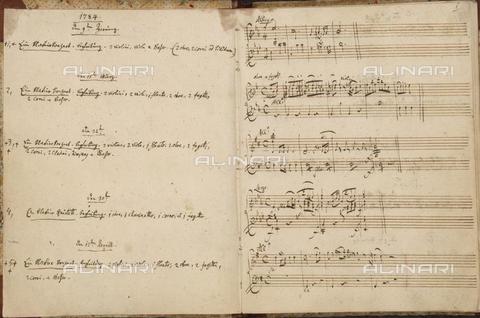 1784.
den 9ten Februar
1, Ein Klavier Konzert. Begleitung. 2 violini, viola e Basso. (2 oboe, 2 corni ad libitum.)
den 15ten März
2, Ein Klavier Konzert. Begleitung. 2 violini, 2 viole, 1 flauto, 2 oboe, 2 fagotti,
2 corni e Basso.
den 22ten
3, Ein Klavier Konzert. Begleitung. 2 violini, 2 viole, 1 flauto, 2 oboe, 2 fagotti,
2 corni, 2 clarini, e Basso.
den 30ten
4, Ein Klavier Quintett. Begleitung. 1 oboe, 1 clarinetto, 1 corno, et 1 fagotto
den 12ten April
5, Ein Klavier Konzert. Begleitung. 2 violini, 2 viole, 1 flauto, 2 oboe, 2 fagotti,
2 corni, e Basso.
ALINARI
ALINARI
ALINARI
ALINARI
ALINARI
ALINARI